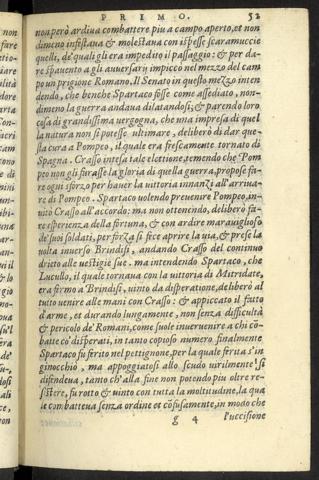 PRIMO. 52
non però ardiua combattere piu a campo aperto, et non
dimeno infestaua & molestaua con ispesse scaramuccie
quelli, de' quali gli era impedito il passaggio: & per da-
re spauento a gli auuersarij impiccò nel mezzo del cam
po un prigione Romano. Il Senato in questo mezzo inten
dendo, che benche Spartaco fosse come assediato, non-
dimeno la guerra andaua dilatandosi; & parendo loro
cosa di grandissima uergogna, che una impresa di quel
la natura non si potesse ultimare, deliberò di dar que-
sta cura a Pompeo, il quale era frescamente tornato di
Spagna. Crasso intesa tale elettione, temendo che Pom
peo non gli furasse la gloria di quella guerra, propose fa-
re ogni sforzo per hauer la uittoria innanzi all'arriua-
re di Pompeo. Spartaco uolendo preuenire Pompeo, in-
uitò Crasso all'accordo: ma non ottenendo, deliberò fa-
re esperienza della fortuna, & con ardire marauiglioso
de' suoi soldati, per forza si fece aprire la uia, & prese la
uolta inuerso Brindisi, andando Crasso del continuo
drieto alle uestigie sue. ma intendendo Spartaco, che
Lucullo, il quale tornaua con la uittoria di Mitridate,
era fermo a Brindisi, uinto da disperatione, deliberò al
tutto uenire alle mani con Crasso: & appiccato il fatto
d'arme, et durando lungamente, non senza difficultà
& pericolo de' Romani, come suole interuenire a chi cō-
batte cō disperati, in tanto copioso numero. finalmente
Spartaco fu ferito nel pettignone, per la quale ferita s'in
ginocchiò, ma appoggiatosi allo scudo uirilmente si
difendeua, tanto ch'alla fine non potendo piu oltre re-
sistere, fu rotto & uinto con tutta la moltitudine, la qua
le combatteua senza ordine et cōfusamente, in modo che
g 4 l'uccisione